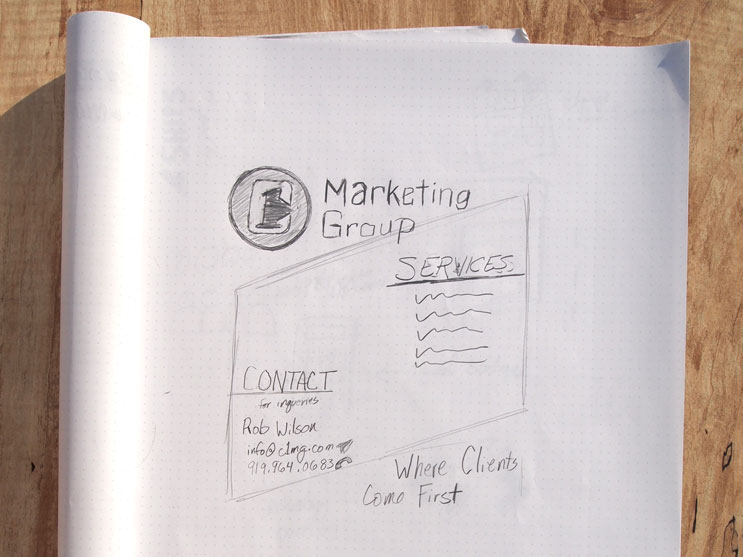 1
Marketing
Group
SERVICES
CONTACT
for inqueries
Rob Wilson
info@c1mg.com
919.964.0683
Where Clients
Come First